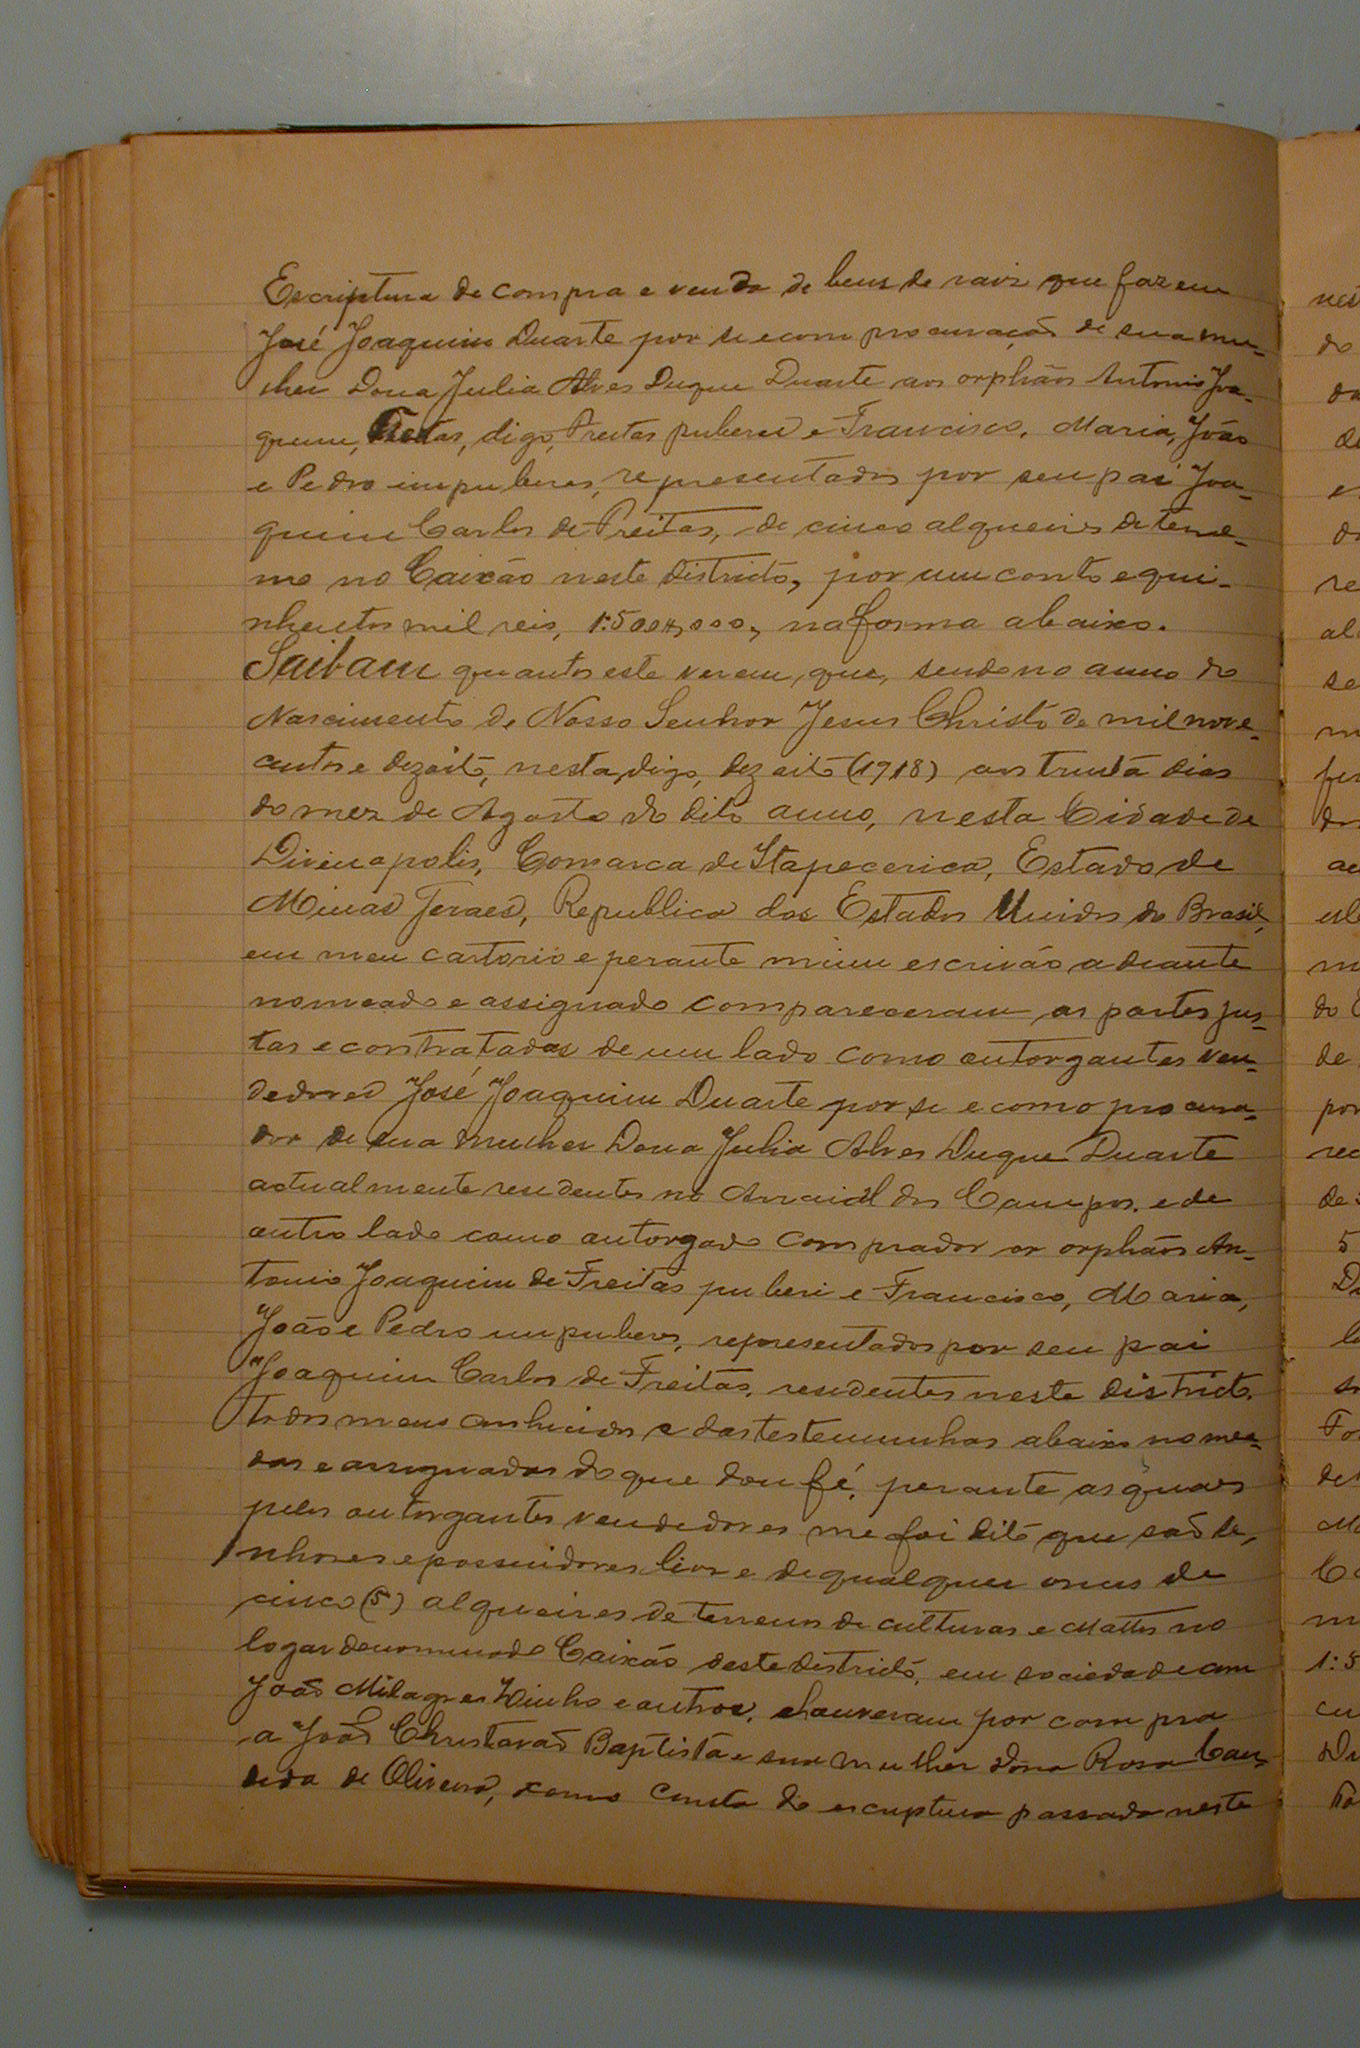 Escriptura de compra e venda de bens de raiz que fazem
José Joaquim Duarte por si e com procuração de sua mu-
lher Dona Julia Alves Duque Duarte aos orphãos Antonio Joa-
quim, Freitas, digo, Freitas puberi e Francisco, Maria, João
e Pedro impuberes, representados por seu pai Joa-
quim Carlos de Freitas, de cinco alqueires de terre-
no no Caixão neste districto, por um conto e qui-
nhentos mil reis, 1:500#000, na forma abaixo.
Saibam quantos este verem, que, sendo no anno do
Nascimento de Nosso Senhor Jesus Christo de mil nove-
centos e dezoito, nesta, digo, dezoito (1918) aos trinta dias
do mez de Agosto do dito anno, nesta Cidade de
Divinopolis, Comarca de Itapecerica, Estado de
Minas Geraes, Republica dos Estados Unidos do Brasil,
em meu cartorio e perante mim escrivão adeante
nomeado e assignado compareceram as partes jus-
tas e contratadas de um lado como outorgantes ven-
dedores José Joaquim Duarte por si e como procura-
dor de sua mulher Dona Julia Alves Duque Duarte
actualmente residentes no Arraial dos Campos. e de
outro lado como outorgado comprador os orphãos An-
tonio Joaquim de Freitas puberi e Francisco, Maria,
João e Pedro impuberes, representados por seu pai
Joaquim Carlos de Freitas, residentes neste districto,
todos meus conhecidos e das testemunhas abaixo nomea-
das e assignadas do que dou fé, perante as quaes
pelos outorgantes vendedores me foi dito que são se-
nhores e possuidores livre de qualquer onus de
cinco (5) alqueires de terrenos de culturas e Mattos no
logar denominado Caixão deste districto, em sociedade com
João Milagres e outros, e houveram por compra
a João Christovão Baptista e sua mulher Dona Rosa Can-
dida de Oliveira, como consta da escriptura passada neste